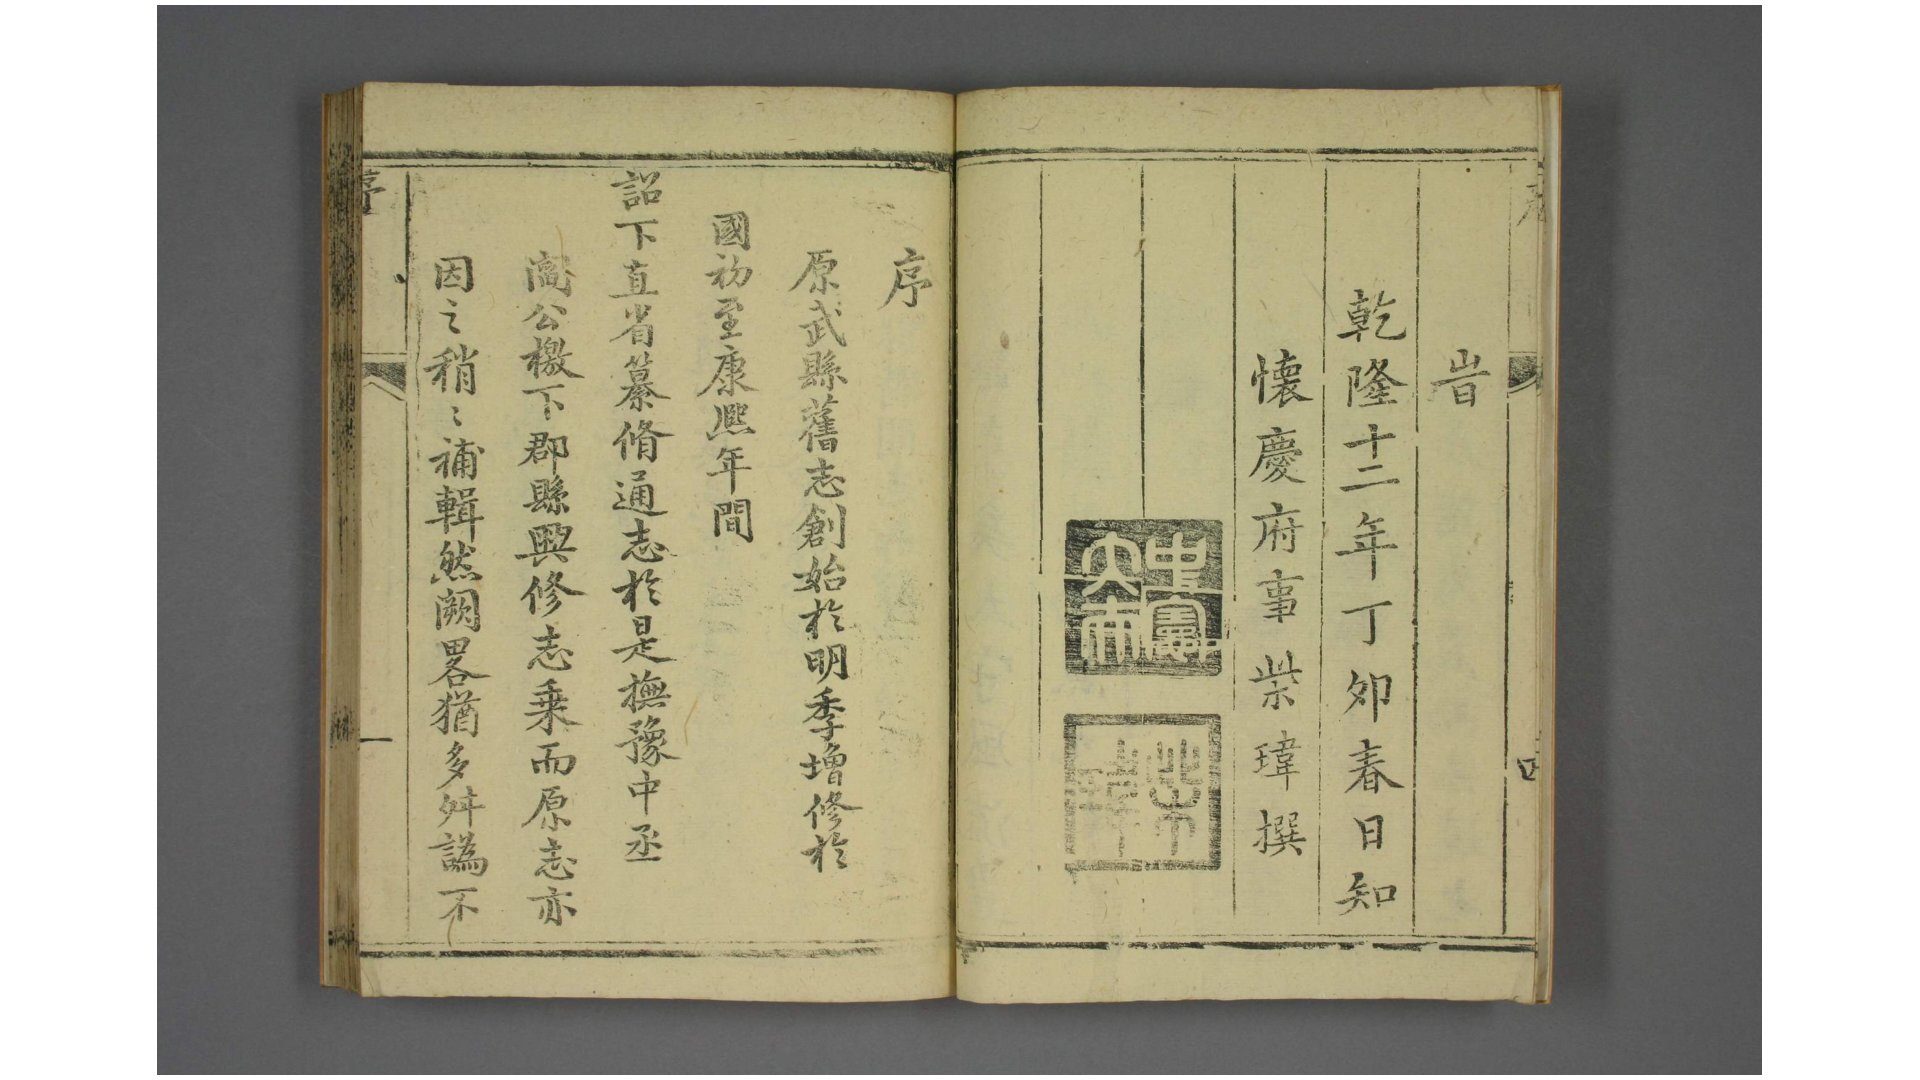 四
旹
乾隆十二年丁夘春日知
懷慶府事柴瑋撰
中憲大夫
柴瑋
序
原武縣舊志創始於明季增修於
國初至康熙年間
詔下直省纂脩通志於是撫豫中丞
閻公檄下郡縣興修志乗而原志亦
因之稍〻補輯然闕畧猶多舛譌不
序
一